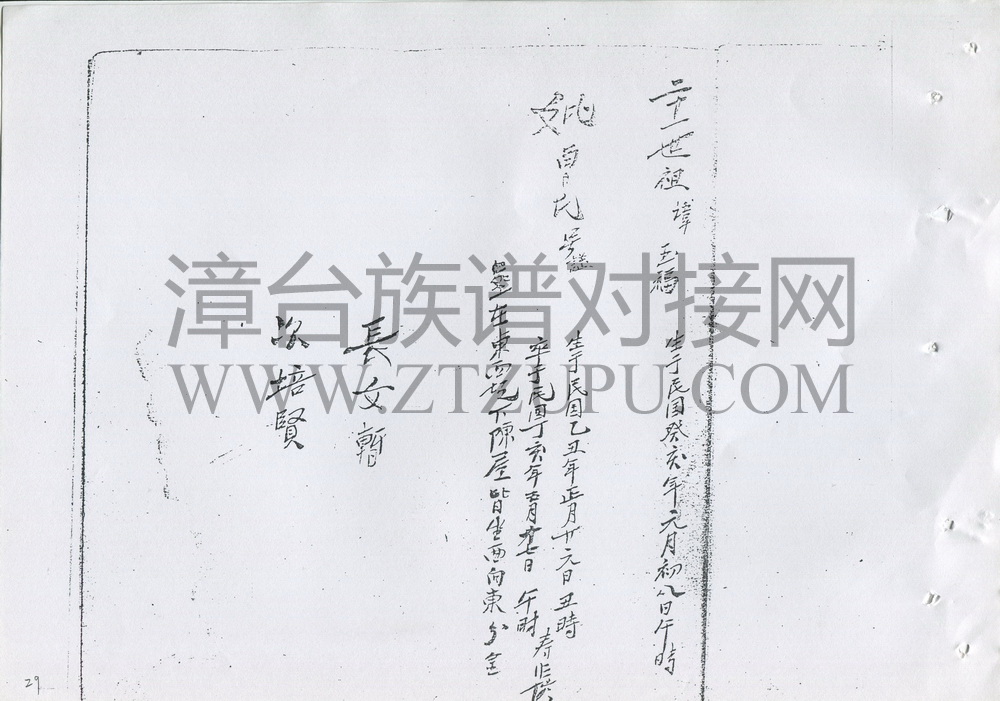 二十一世祖 諱 玉福 生于民国癸亥年元月初八日午時
妣 曹氏 号 生于民国乙丑年正月廿元日丑時
卒于民國丁亥年五月廿七日 午时 寿
墓在東西坑下陳屋皆坐西向東分金
長文暫
次培賢
漳台族谱对接网
WWW.ZTZUPU.COM
29